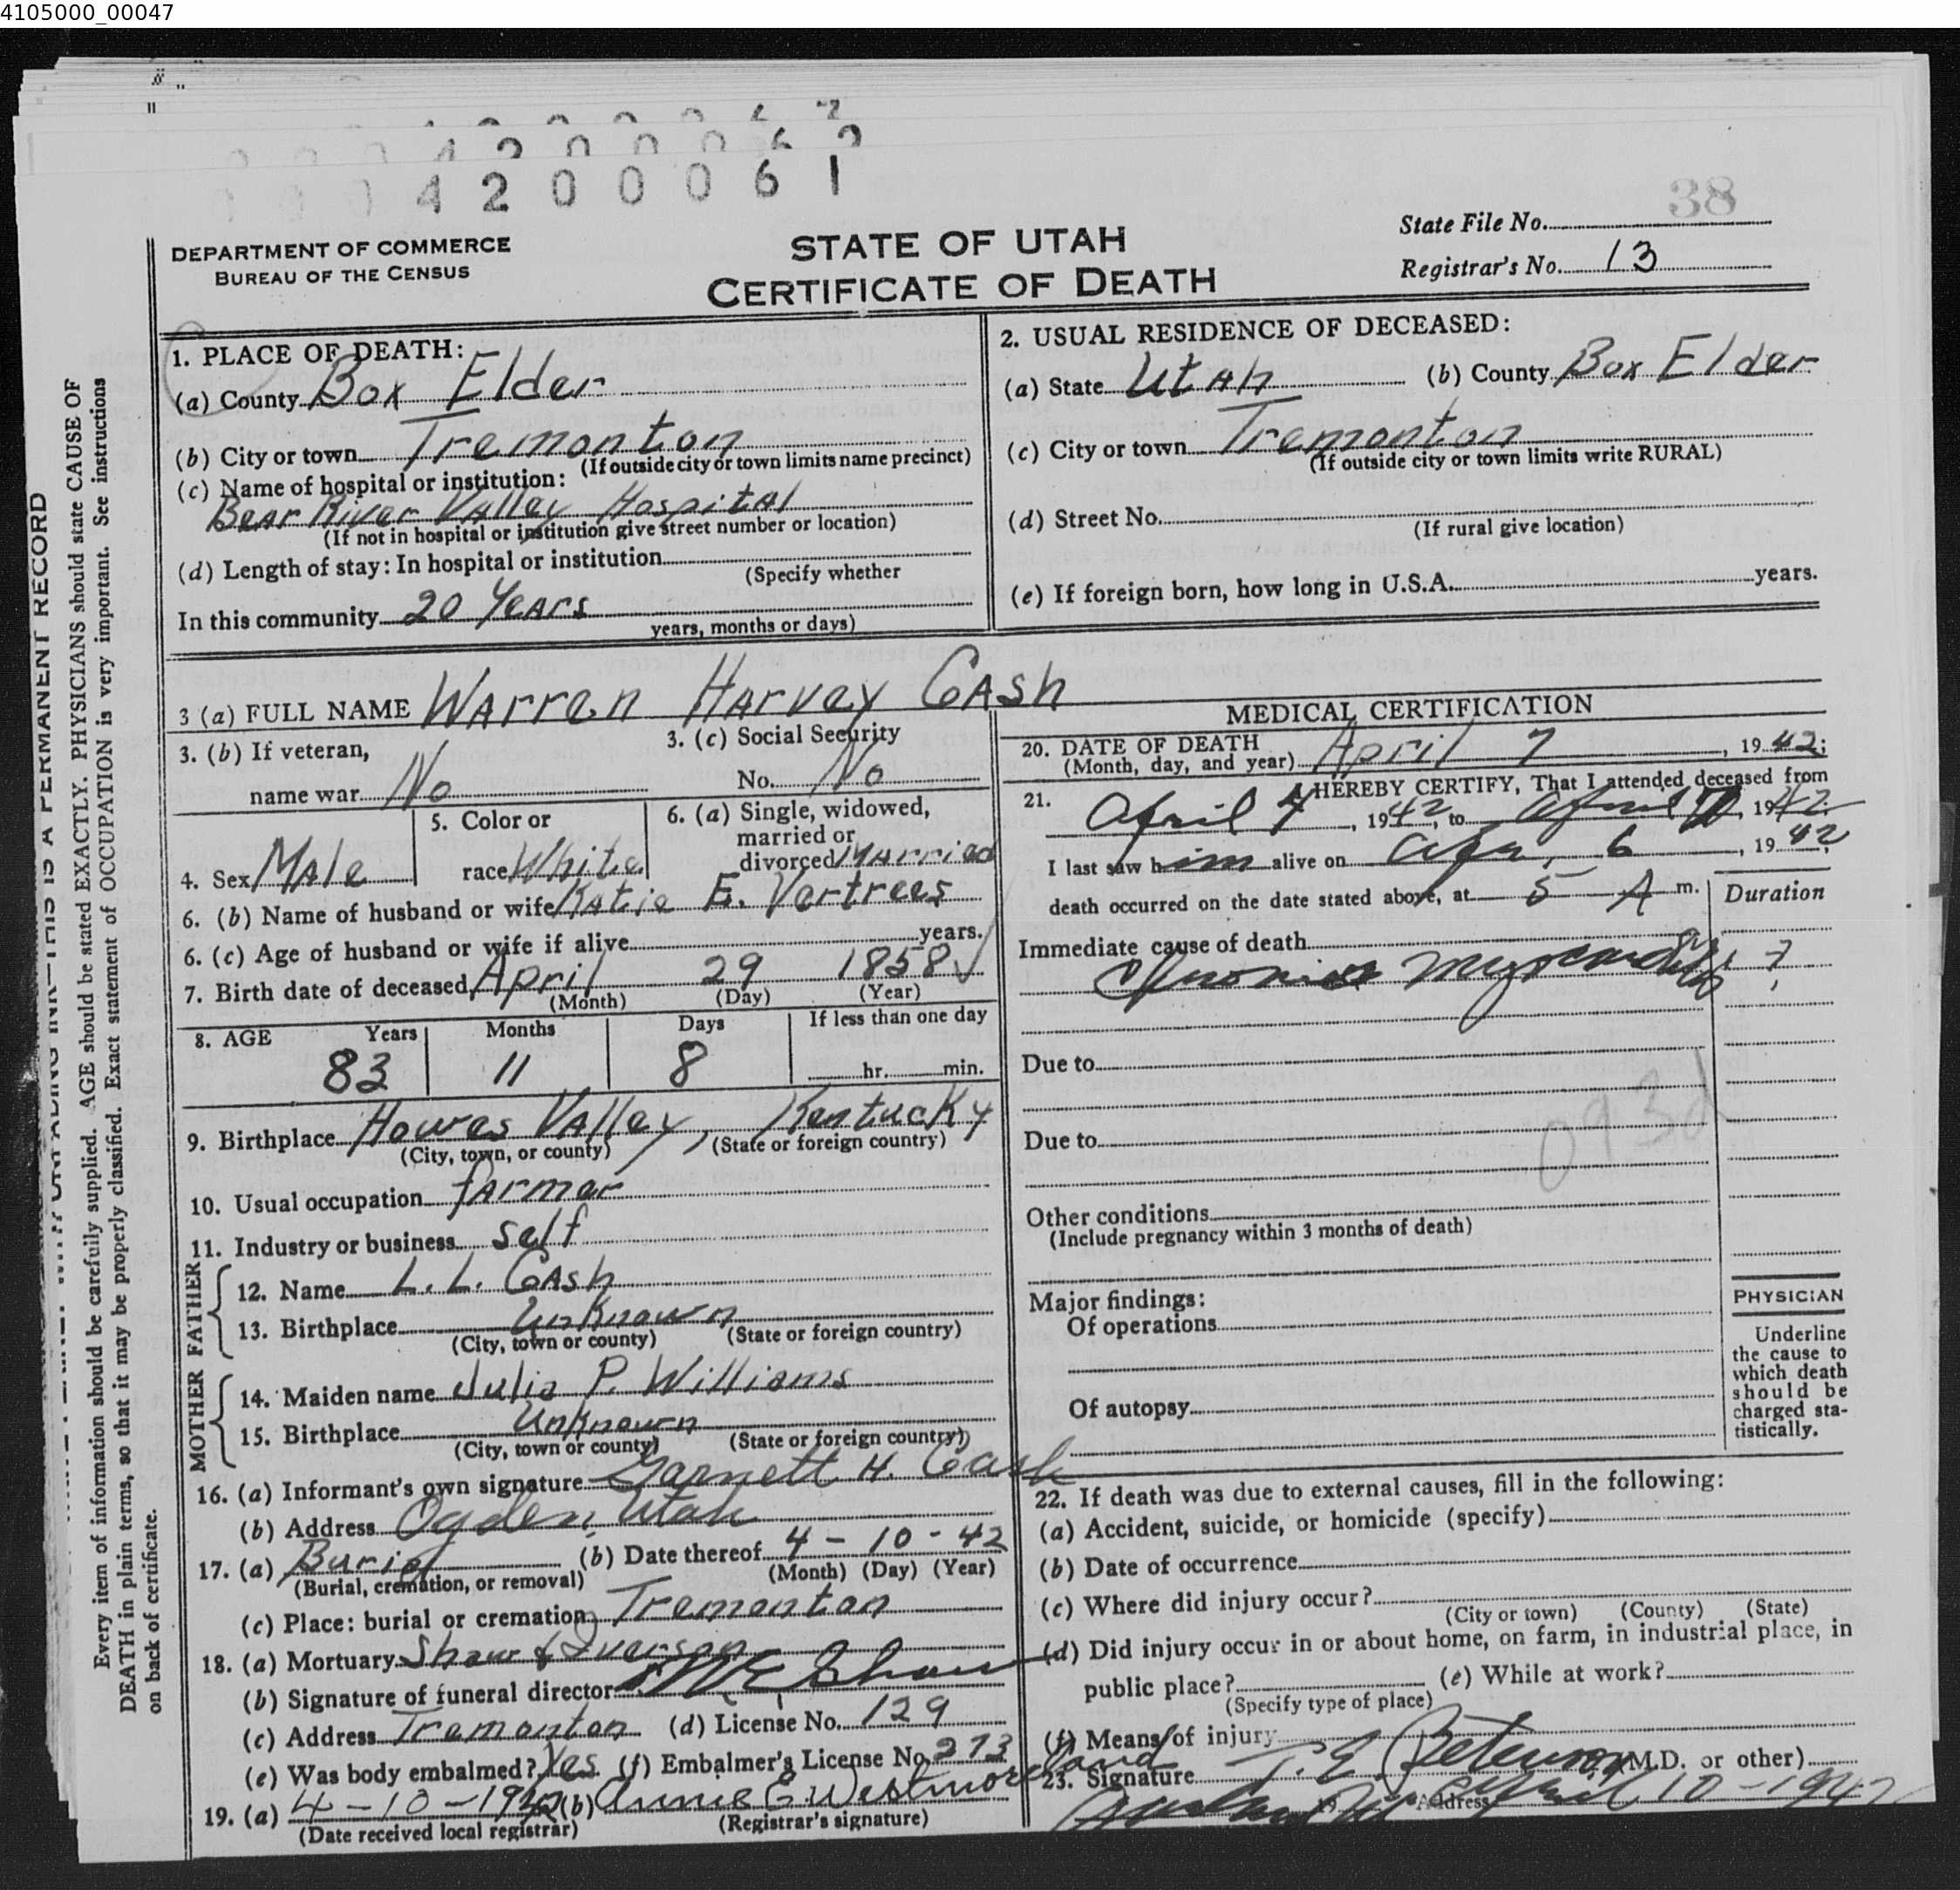 4105000_00047
4 2 0 0 0 6 2
4 2 0 0 0 6 1
38
DEPARTMENT OF COMMERCE
BUREAU OF THE CENSUS
STATE OF UTAH
CERTIFICATE OF DEATH
State File No.
Registrar's No. 13
WITH UNFADING INK—THIS IS A PERMANENT RECORD
Every item of information should be carefully supplied. AGE should be stated EXACTLY. PHYSICIANS should state CAUSE OF
DEATH in plain terms, so that it may be properly classified. Exact statement of OCCUPATION is very important. See instructions
on back of certificate.
1. PLACE OF DEATH:
(a) County Box Elder
(b) City or town Tremonton
(If outside city or town limits name precinct)
(c) Name of hospital or institution:
Bear River Valley Hospital
(If not in hospital or institution give street number or location)
(d) Length of stay: In hospital or institution
(Specify whether
In this community 20 Years
years, months or days)
2. USUAL RESIDENCE OF DECEASED:
(a) State Utah (b) County Box Elder
(c) City or town Tremonton
(If outside city or town limits write RURAL)
(d) Street No.
(If rural give location)
(e) If foreign born, how long in U.S.A. years.
3 (a) FULL NAME Warren Harvey Cash
3. (b) If veteran,
name war No
3. (c) Social Security
No. No
4. Sex Male
5. Color or
race White
6. (a) Single, widowed,
married or
divorced Married
6. (b) Name of husband or wife Katie E. Vertrees
6. (c) Age of husband or wife if alive years.
7. Birth date of deceased April 29 1858
(Month) (Day) (Year)
8. AGE Years Months Days If less than one day
83 11 8 hr. min.
9. Birthplace Howes Valley, Kentucky
(City, town, or county) (State or foreign country)
10. Usual occupation farmer
11. Industry or business self
FATHER
12. Name L. L. Cash
13. Birthplace Unknown
(City, town or county) (State or foreign country)
MOTHER
14. Maiden name Julia P. Williams
15. Birthplace Unknown
(City, town or county) (State or foreign country)
16. (a) Informant's own signature Garnett H. Cash
(b) Address Ogden, Utah
17. (a) Burial (b) Date thereof 4 - 10 - 42
(Burial, cremation, or removal) (Month) (Day) (Year)
(c) Place: burial or cremation Tremonton
18. (a) Mortuary Shaw & Iverson
(b) Signature of funeral director M E Shaw
(c) Address Tremonton (d) License No. 129
(e) Was body embalmed? Yes (f) Embalmer's License No. 273
19. (a) 4-10-1942 (b) Annie E Westmoreland
(Date received local registrar) (Registrar's signature)
MEDICAL CERTIFICATION
20. DATE OF DEATH
(Month, day, and year) April 7, 1942;
21. I HEREBY CERTIFY, That I attended deceased from
April 4, 1942, to April, 1942
I last saw him alive on Apr. 6, 1942
death occurred on the date stated above, at 5 A m.
Duration
Immediate cause of death
Chronic myocarditis ?
Due to
Due to
093d
Other conditions
(Include pregnancy within 3 months of death)
Major findings:
Of operations
Of autopsy
PHYSICIAN
Underline
the cause to
which death
should be
charged sta-
tistically.
22. If death was due to external causes, fill in the following:
(a) Accident, suicide, or homicide (specify)
(b) Date of occurrence
(c) Where did injury occur?
(City or town) (County) (State)
(d) Did injury occur in or about home, on farm, in industrial place, in
public place? (e) While at work?
(Specify type of place)
(f) Means of injury
23. Signature (M.D. or other)
Address April 10-1942